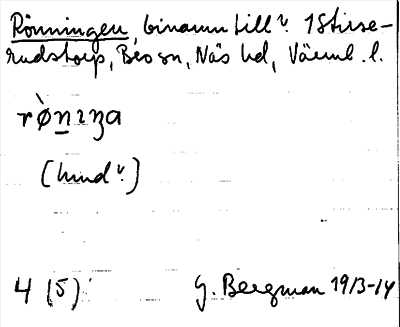 Rönningen, binamn till v. 1 Stirse-
rudstorp, Bro sn, Näs hd, Värml. l.
rø̀nıŋa
(hind v.)
4 (5) G. Bergman 1913-14